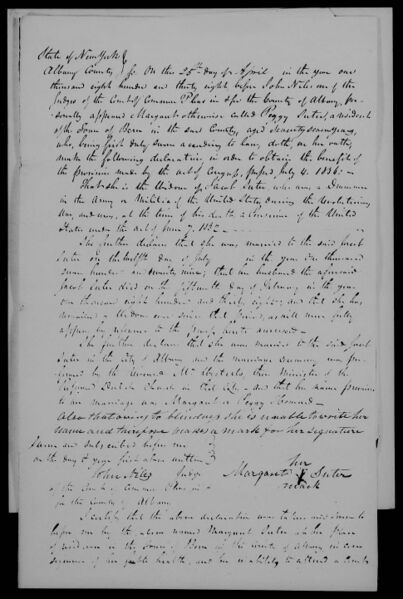 State of New York }
Albany County } ss. On this 25th day of April in the year one
thousand eight hundred and thirty eight before John Niles one of the
Judges of the Court of Common Pleas in & for the County of Albany, per-
sonally appeared Margaret otherwise called Peggy Suter, a resident
of the Town of Bern in the said County, aged seventy seven years,
who, being first duly sworn according to law, doth, on her oath,
make the following declaration, in order to obtain the benefit of
the provision made by the act of Congress, passed, July 4. 1836:
That she is the Widow of Jacob Suter, who, was a Drummer
in the Army or Militia of the United States, during the revolutionary
War, and was, at the time of his death a Pensioner of the United
States under the act of June 7, 1832
She further declares that she was married to the said Jacob
Suter on the twelfth day of July in the year one thousand
seven hundred and ninety nine; that her husband the aforesaid
Jacob Suter died on the fifteenth day of February in the year
one thousand eight hundred and thirty eight; and that she has
remained a Widow ever since that period, as will more fully
appear by reference to the proof hereto annexed
She further declares that she was married to the said Jacob
Suter in the City of Albany and the marriage ceremony was per-
formed by the Reverend Mr. then Minister of the
Reformed Dutch Church in that City - and that her name previous
to her marriage was Margaret or Peggy
also that owing to blindness she is unable to write her
name and therefore makes a mark for her signature
Sworn and subscribed before me
on the day & year first above written } her
John Niles Judge Margaret X Suter
of the Court of Common Pleas in & mark
for the County of Albany
I certify that the above declaration was taken and sworn to
before me by the above named Margaret Suter at her place
of residence in the Town of Bern in the County of Albany in con-
sequence of her feeble health, and her inability to attend a Court